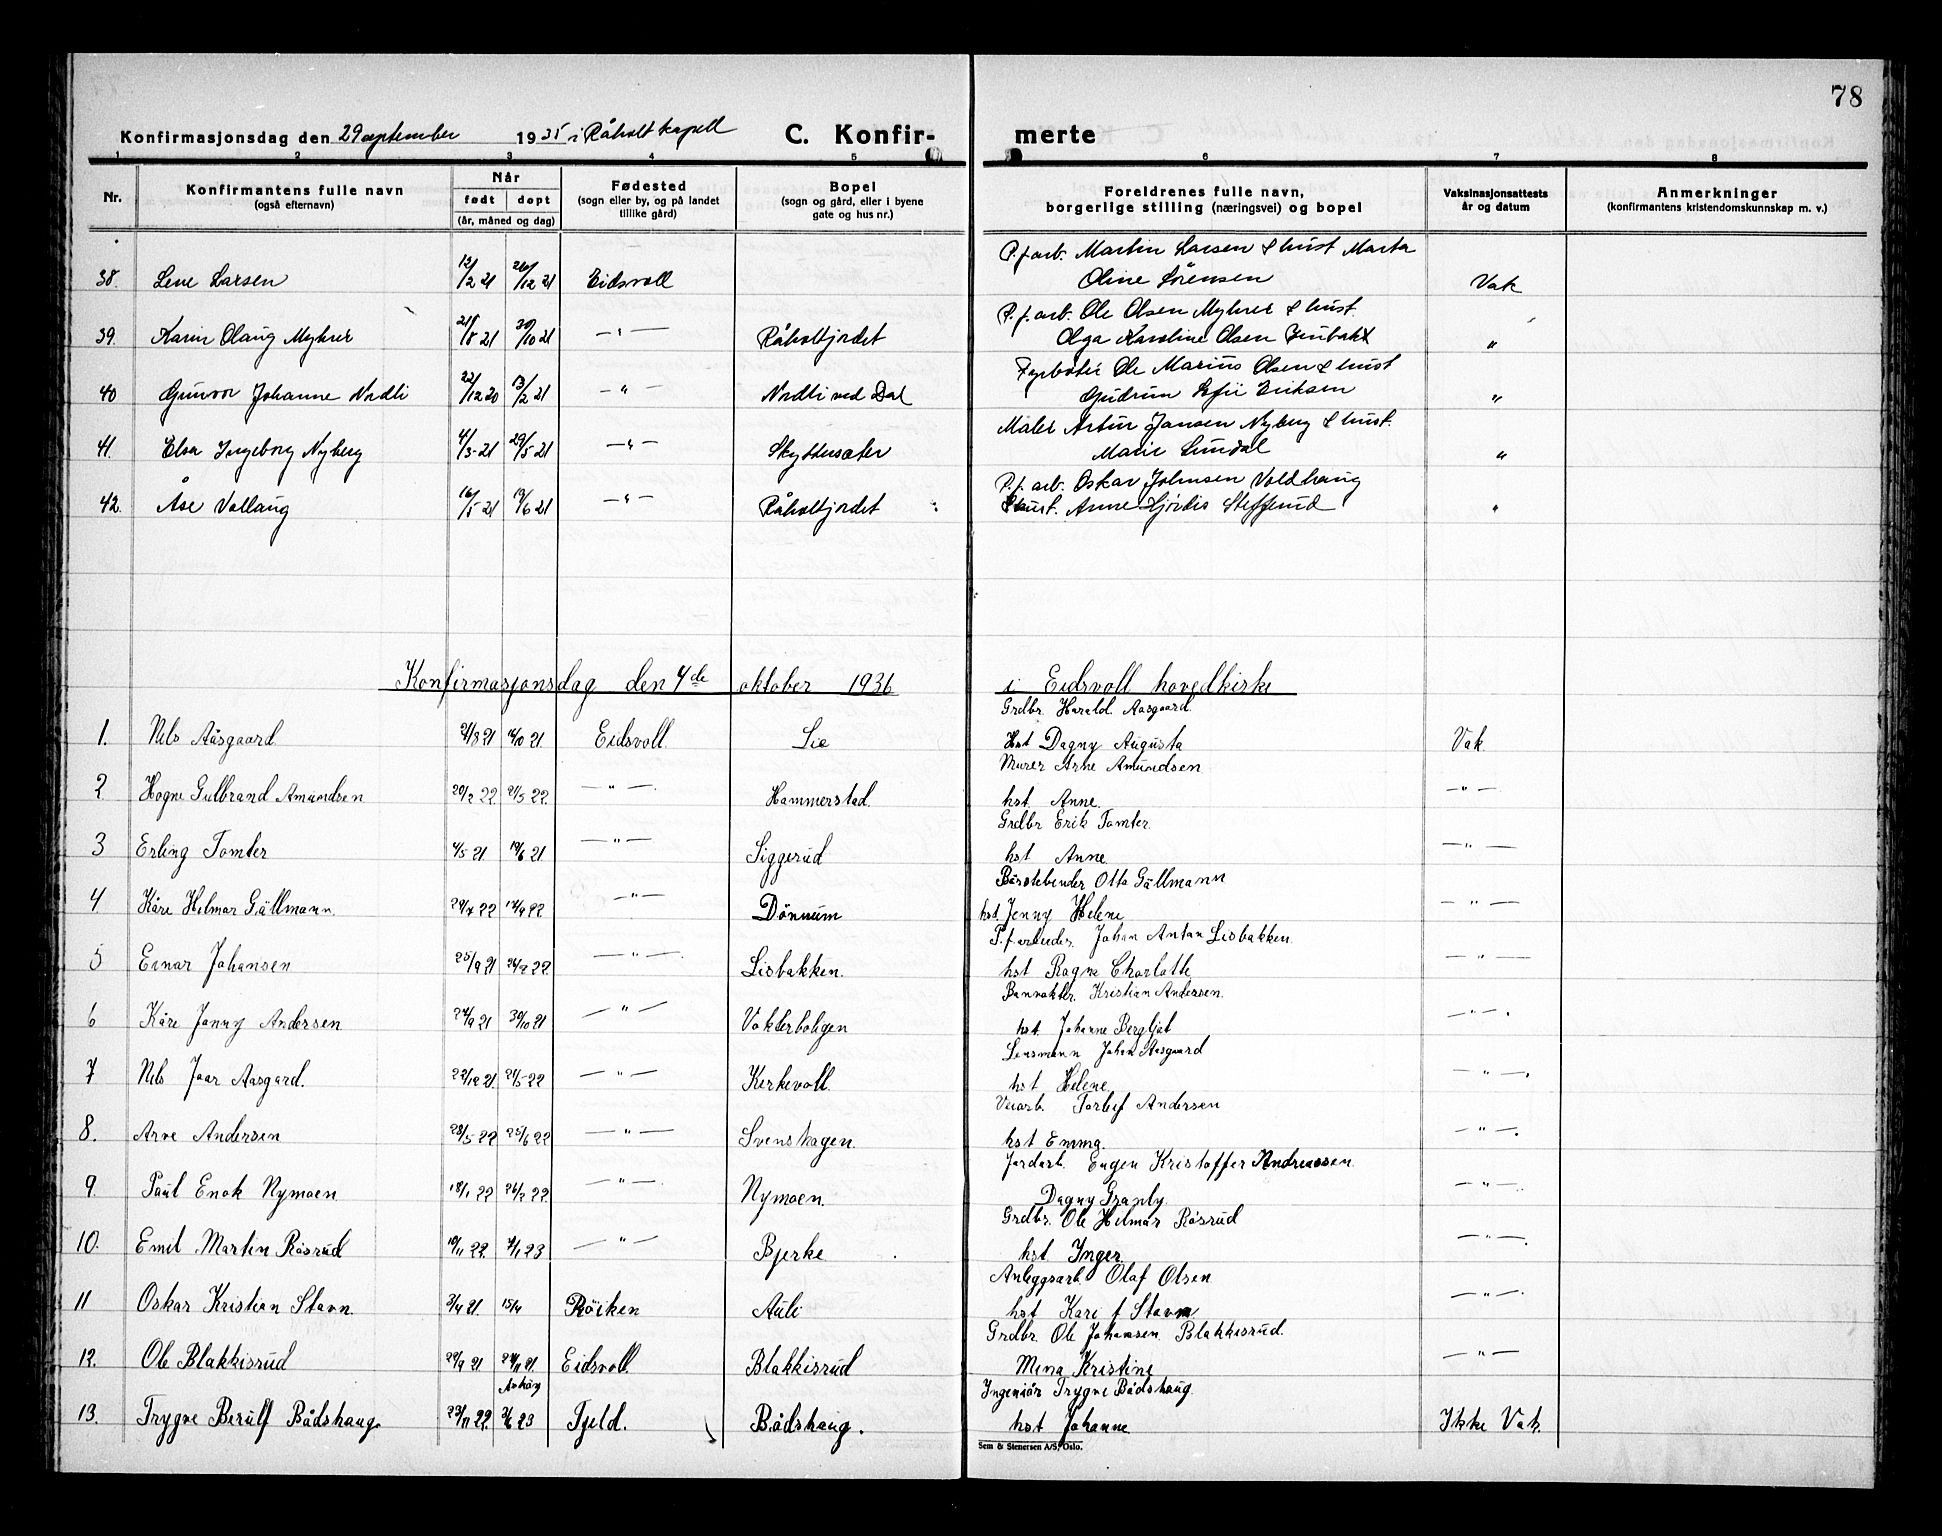 78
Konfirmasjonsdag den 29 september 1935 i Råholt kapell C. Konfir- merte
1 2 3 4 5 6 7 8
Nr. Konfirmantens fulle navn (også efternavn) Når født døpt (år, måned og dag) Fødested (sogn eller by, og på landet tillike gård) Bopel (sogn og gård, eller i byene gate og hus nr.) Foreldrenes fulle navn, borgerlige stilling (næringsvei) og bopel Vaksinasjonsattests år og datum Anmerkninger (konfirmantens kristendomskunnskap m. v.)
P.f.arb. Martin Larsen & hust Marta
38. Lene Larsen 12/2 21 26/12 21 Eidsvoll Oline Sørensen Vak
P.f.arb. Ole Olsen Myhrer & hust.
39. Karin Olaug Myhrer 21/8 21 30/10 21 —"— Råholtjordet Olga Karoline Olsen "
Fyrbøter Ole Marius Olsen & hust
40 Gunvor Johanne Nordli 22/12 20 13/2 21 —"— Nordli ved Dal Gudrun Sofie Eriksen "
Maler Artur Jansen Nyberg & hust.
41. Elsa Ingeborg Nyberg 4/3 21 29/5 21 —"— Skyttersæter Marie Lundal "
P.f. arb. Oskar Johnsen Voldhaug
42. Åse Vollaug 16/5 21 19/6 21 —"— Råholtjordet & hust. Anne Hjördis Steffenud "
Konfirmasjonsdag den 4de oktober 1936 i Eidsvoll hovedkirke
Grdbr. Harald Aasgaard.
1. Nils Aasgaard 21/8 21 16/10 21 Eidsvoll Lie Hst Dagny Augusta Vak.
Murer Arne Amundsen
2 Hogne Gulbrand Amundsen 20/2 22 21/5 22 —"— Hammerstad. hst Anne. —"—
Grdbr Erik Tomter.
3 Erling Tomter 4/5 21 19/6 21 —"— Siggerud hst Anne —"—
Börstebinder Otto Gällmann
4 Kåre Hilmar Gällmann. 24/7 22 17/9 22 —"— Dönnum hst. Jenny Helene —"—
P.f arbeider. Johan Anton Lisbakken.
5 Einar Johansen 25/9 21 26/2 22 —"— Lisbakken. hst Ragne Charlotte —"—
Banvokter. Kristian Andersen.
6 Kåre Jonny Andersen 27/9 21 30/10 21 —"— Vokterboligen hst. Johanne Bergljot —"—.
Lensmann Johan Aasgaard
7 Nils Joar Aasgard. 22/12 21 21/5 22 —"— Kirkevoll. hst Helene —"—.
Veiarb. Torleif Andersen
8. Arve Andersen 28/5 22 25/6 22 —"— Svenshagen. hst Emma. —"—.
Jordarb. Eugen Kristoffer Andreassen.
9. Paul Enok Nymoen 18/1 22 26/2 22 —"— Nymoen. Dagny Granly. —"—.
Grdbr. Ole Hilmar Råsrud
10. Emil Martin Råsrud 19/11 22. 7/1 23 —"— Bjerke. hst Inger. —"—.
Anleggsarb. Olaf Olsen
11 Oskar Kristian Stavn. 3/4 21. 15/4 Röiken Auli hst Kari f Stavn —"—.
Grdbr. Ole Johansen Blakkisrud.
12. Ole Blakkisrud 29/9 21 27/11 21. Eidsvoll. Blakkisrud Mina Kristine —"—
Ingeniör Trygve Bådshaug.
13. Trygve Berulf Bådshaug. 23/11 22. 3/6 23 Fjeld. Bådshaug. hst Johanne Ikke Vak.
Sem & Stenersen A/S, Oslo.